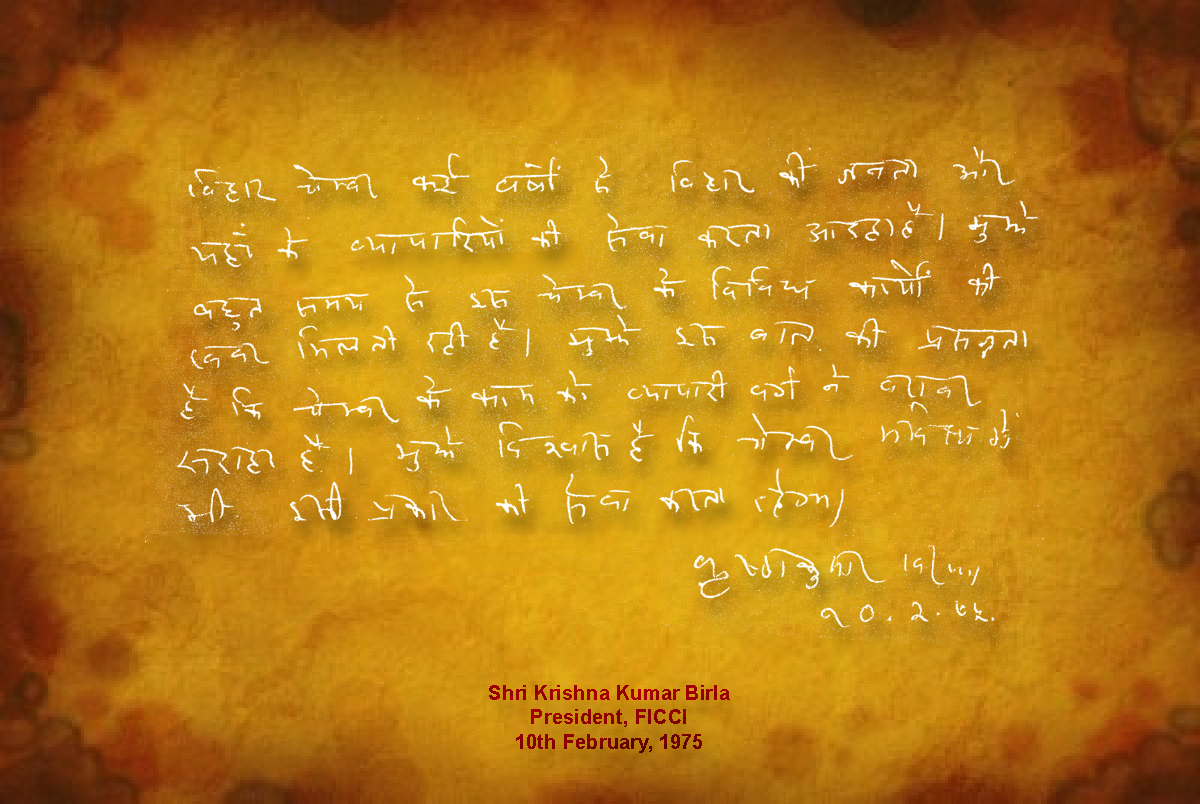 बिहार चेम्बर कई वर्षों से बिहार की जनता और
यहाँ के व्यापारियों की सेवा करता आ रहा है। मुझे
बहुत समय से इस चेम्बर के विविध कार्यों की
खबर मिलती रही है। मुझे इस बात की प्रसन्नता
है कि चेम्बर के काम को व्यापारी वर्ग ने बराबर
सराहा है। मुझे विश्वास है कि चेम्बर भविष्य में
भी इसी प्रकार की सेवा करता रहेगा।
कृष्णकुमार बिरला
१०.२.७५.
Shri Krishna Kumar Birla
President, FICCI
10th February, 1975